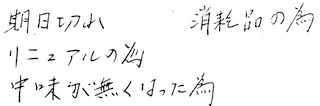 期日切れ 消耗品の為
リニュアルの為
中味が無くなった為